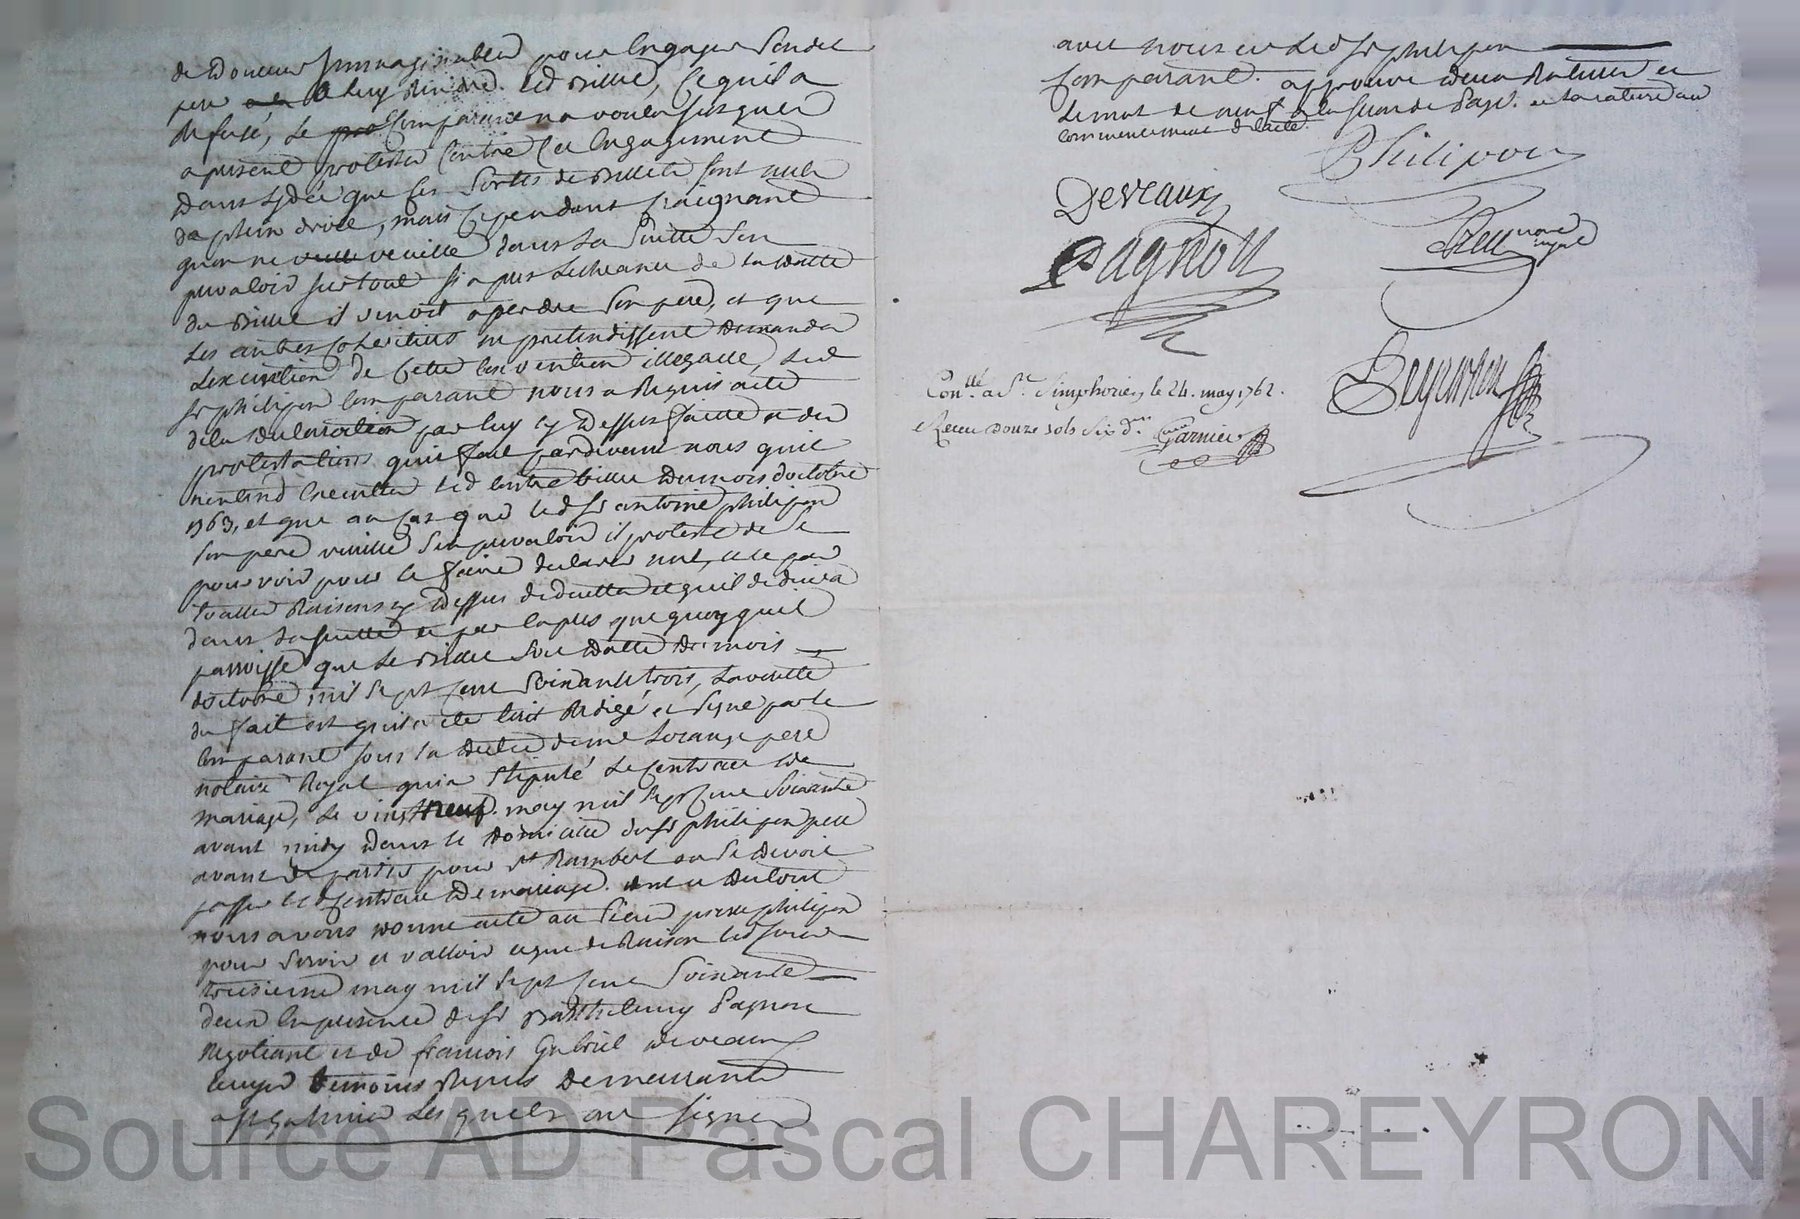 de douceur Immaginables pour Engager Sondit
pere a luy Rendre led Billet, Ce quil a
Refusé, Le Comparant na voulu jusques
apresent protester Contre Cet Engagement
dans Lydée que Ces Sortes de Billets sont nuls
de plein droit, mais Cependant Craignant
quon ne veuille dans La Suitte Sen
prevaloir surtout si apres Lecheance de la datte
du Billet il venoit a perdre Son pere, et que
Les autres Coheritiers en pretendissent demander
Lexecution de Cette Convention illegalle, Led
Sr philipon Comparant nous a Requis acte
dela declaration par luy cy dessus faitte et des
protestations quil fait pardevant nous quil
nentend Executer led Contre billet du mois doctobre
1763, et que au Cas que led Sr antoine philipon
Son pere veuille Sen prevaloir il proteste de Se
pourvoir pour le faire declarer nul, et ce par
toutes Raisons cy dessus deduittes et quil deduira
dans La suitte et par Exprés que quoyquil
parroisse que Le Billet Soit datté du mois
doctobre mil Sept Cent Soixante trois, La verité
du fait est quil a eté Ecrit Redigé et Signé par le
Comparant sous la dictée de me Lorange pere
notaire Royal qui a Stipulé Le Contract de
mariage, Le vingt neuf may mil Sept Cent Soixante
avant midy dans le domicille du Sr philipon pere
avant de partir pour St Rambert ou Se devoit
passer led Contract de mariage. dont et du tout
nous avons donné acte au Sieur philipon
pour Servir et valloir ce que de Raison led jour
troisieme may mil Sept Cent Soixante
deux En presence de Sr Barthelemy Pagnon
Negotiant et de francois Gabriel deveaux
temoins Requis demeurants
a st Galmier Lesquels ont signé
avec nous et led Sr philipon
Comparant. approuvé deux Ratures et
Le mot de neuf a la seconde Page. et la rature au
commencement de lacte.
Philipon
Deveaux
Pagnon
Con.lé a St. Simphorien le 24. may 1762.
Receu douze sols six d.rs Garnier
Source AD Pascal CHAREYRON